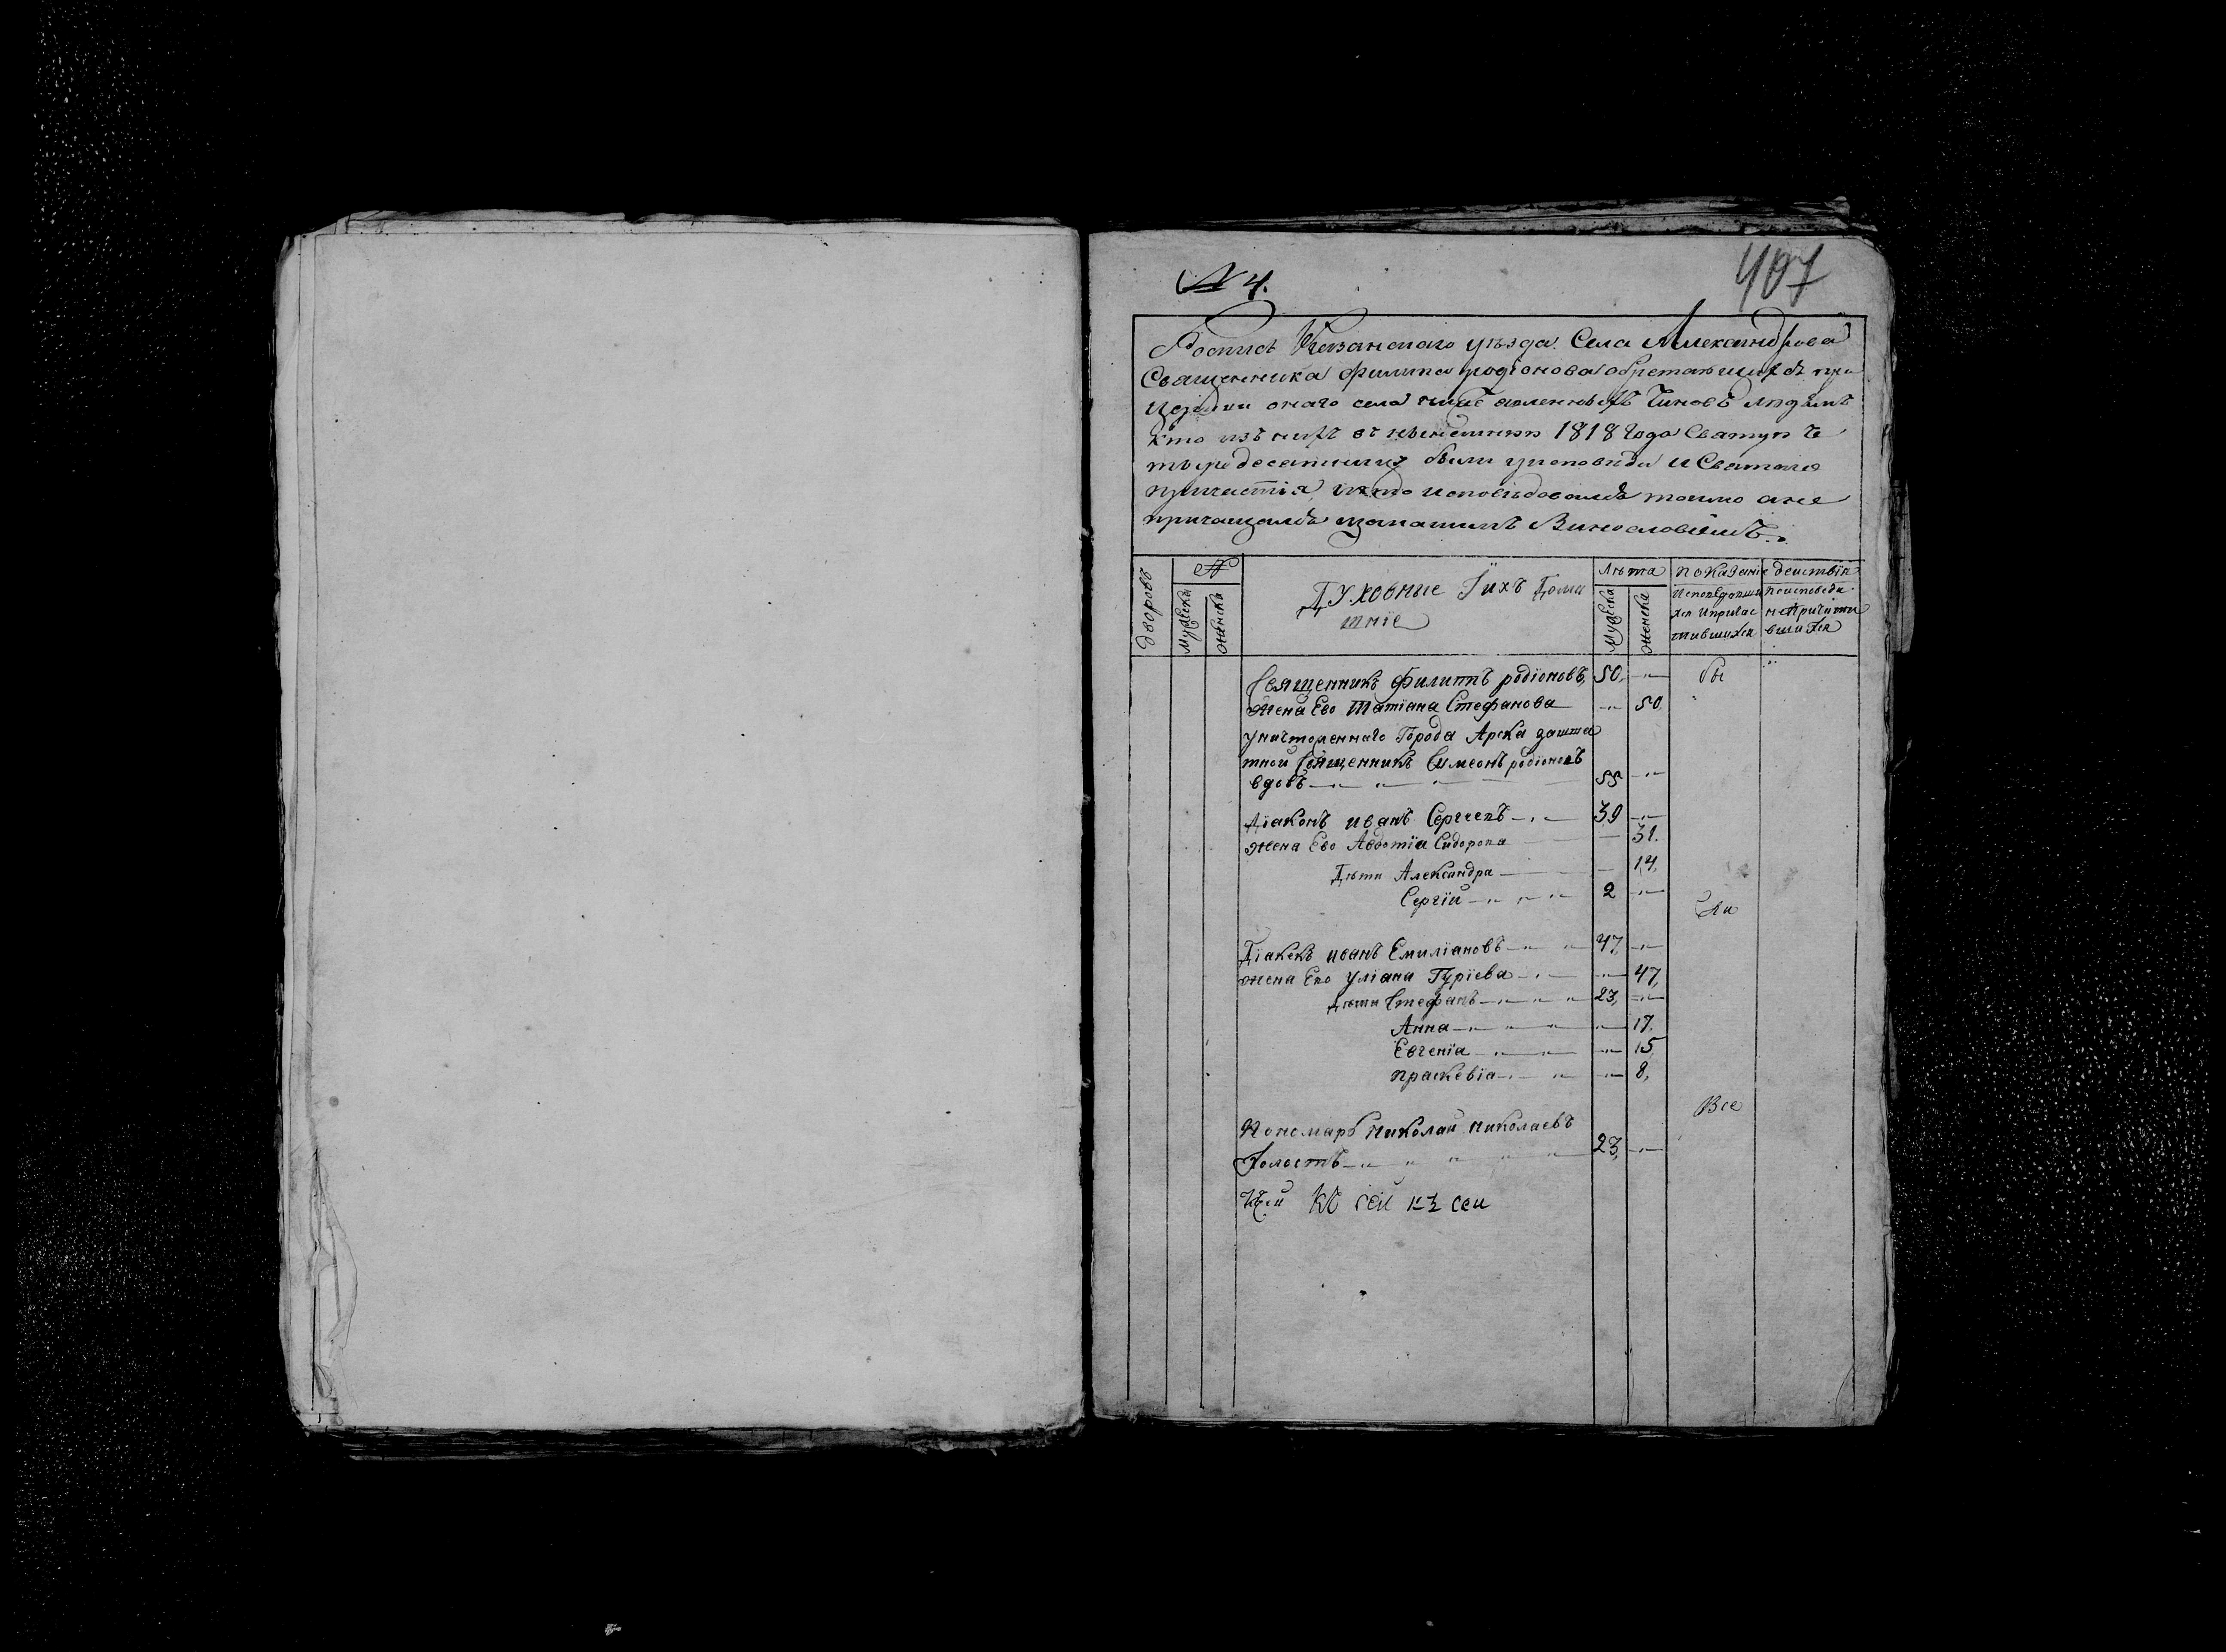 № 4.
407
Роспись Казанскаго уѣзда Села Александрова
Священника Филипа родїонова обретающихсѧ при
церкви онаго села нижеявленныхъ Чиновъ людемъ
кто изъ нихъ въ 1818 года Святую че
тыредесятницу были уисповеди и Святаго
причастїя, и кто исповѣдовалсѧ токмо а не
причащалсѧ Винословїемъ.
дворовъ
№
мужеска
женска
Духовные Їихъ Дома
шнїе
Лѣта
мужеска
женска
показанїе действїя
Исповедавши
хся Ипричас
тившихся
поисповеди
неПричасти
вшихся
Священникъ Филиппъ родїоновъ, 50, —„— бы
Жена Ево Татїана Стефанова —„— 50
Уничтоженнаго Города Арска зашта
тной Священникъ Симеонъ родїоновъ
вдовъ 55 —„—
Дїаконъ иванъ Сергеевъ 39 —„—
жена Ево Авдотїа Сидорова — 31.
Дѣти Александра — 14,
Сергїй 2 —„—
ли
Дїачекъ иванъ Емилїановъ 47, —„—
жена Ево Улїана Гурїева —„— 47,
дѣти Стефанъ 23, —„—
Анна —„— 17.
Евгенїа —„— 15,
праскевїа —„— 8,
Все
Пономарь николай николаевъ
Холостъ 23, —„—
Къ сей къ сеи